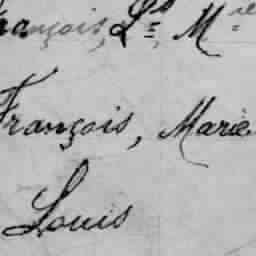 François, Ls, Mie
François, Marie
Louis